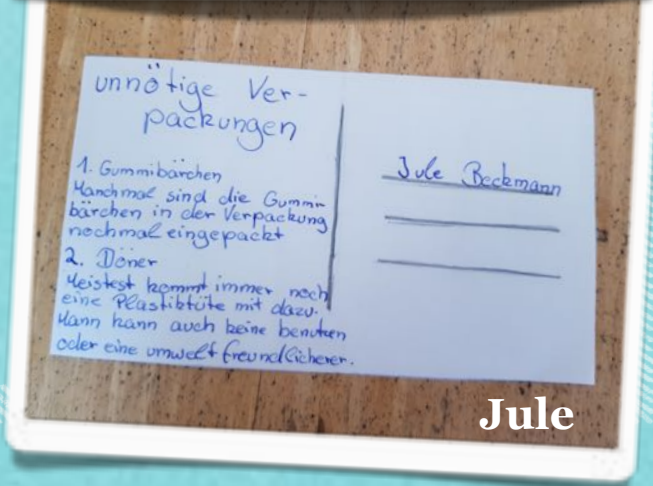 unnötige Ver-
packungen
1. Gummibärchen
Manchmal sind die Gummi-
bärchen in der Verpackung
nochmal eingepackt
2. Döner
Meistest kommt immer noch
eine Plastiktüte mit dazu.
Mann kann auch keine benutzen
oder eine umweltfreundlicherer.
Jule Beckmann
Jule